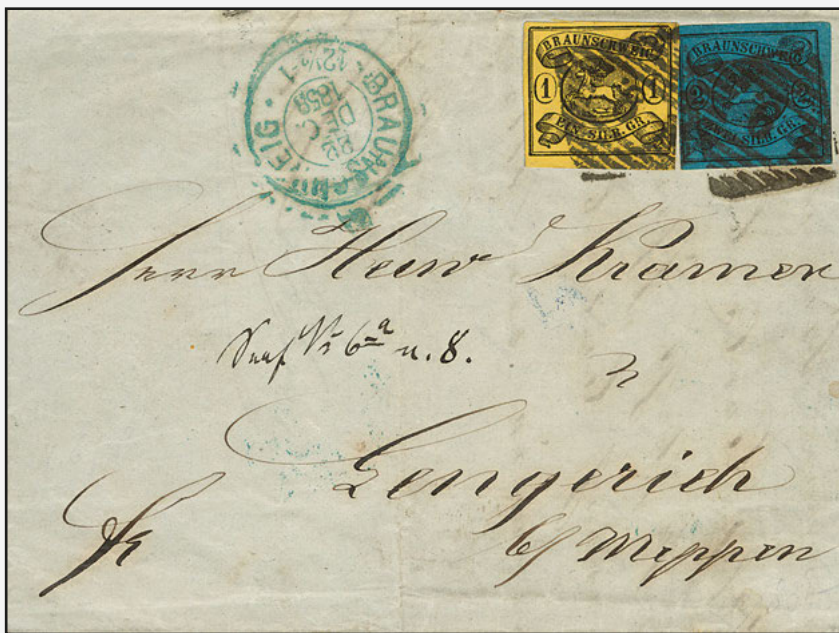 BRAUNSCHWEIG
12½-1
22
DEC
1859
BRAUNSCHWEIG
1 1
EIN. SILB. GR.
BRAUNSCHWEIG
2 2
ZWEI. SILB. GR.
Herrn Heinr Kramer
6a u. 8.
Lengerich
b/ Meppen